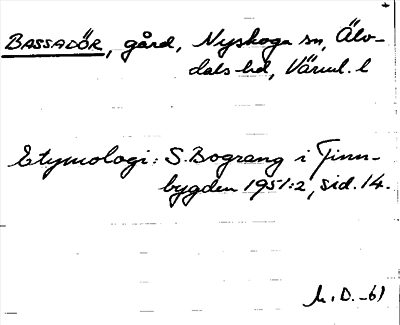 BASSADÖR, gård, Nyskoga sn, Älv-
dals hd, Värml. l
Etymologi: S. Bograng i Finn-
bygden 1951:2, sid. 14.
h. D. -61